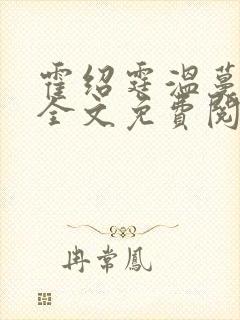 霍绍霆温蔓
全文免费阅
冉常凤